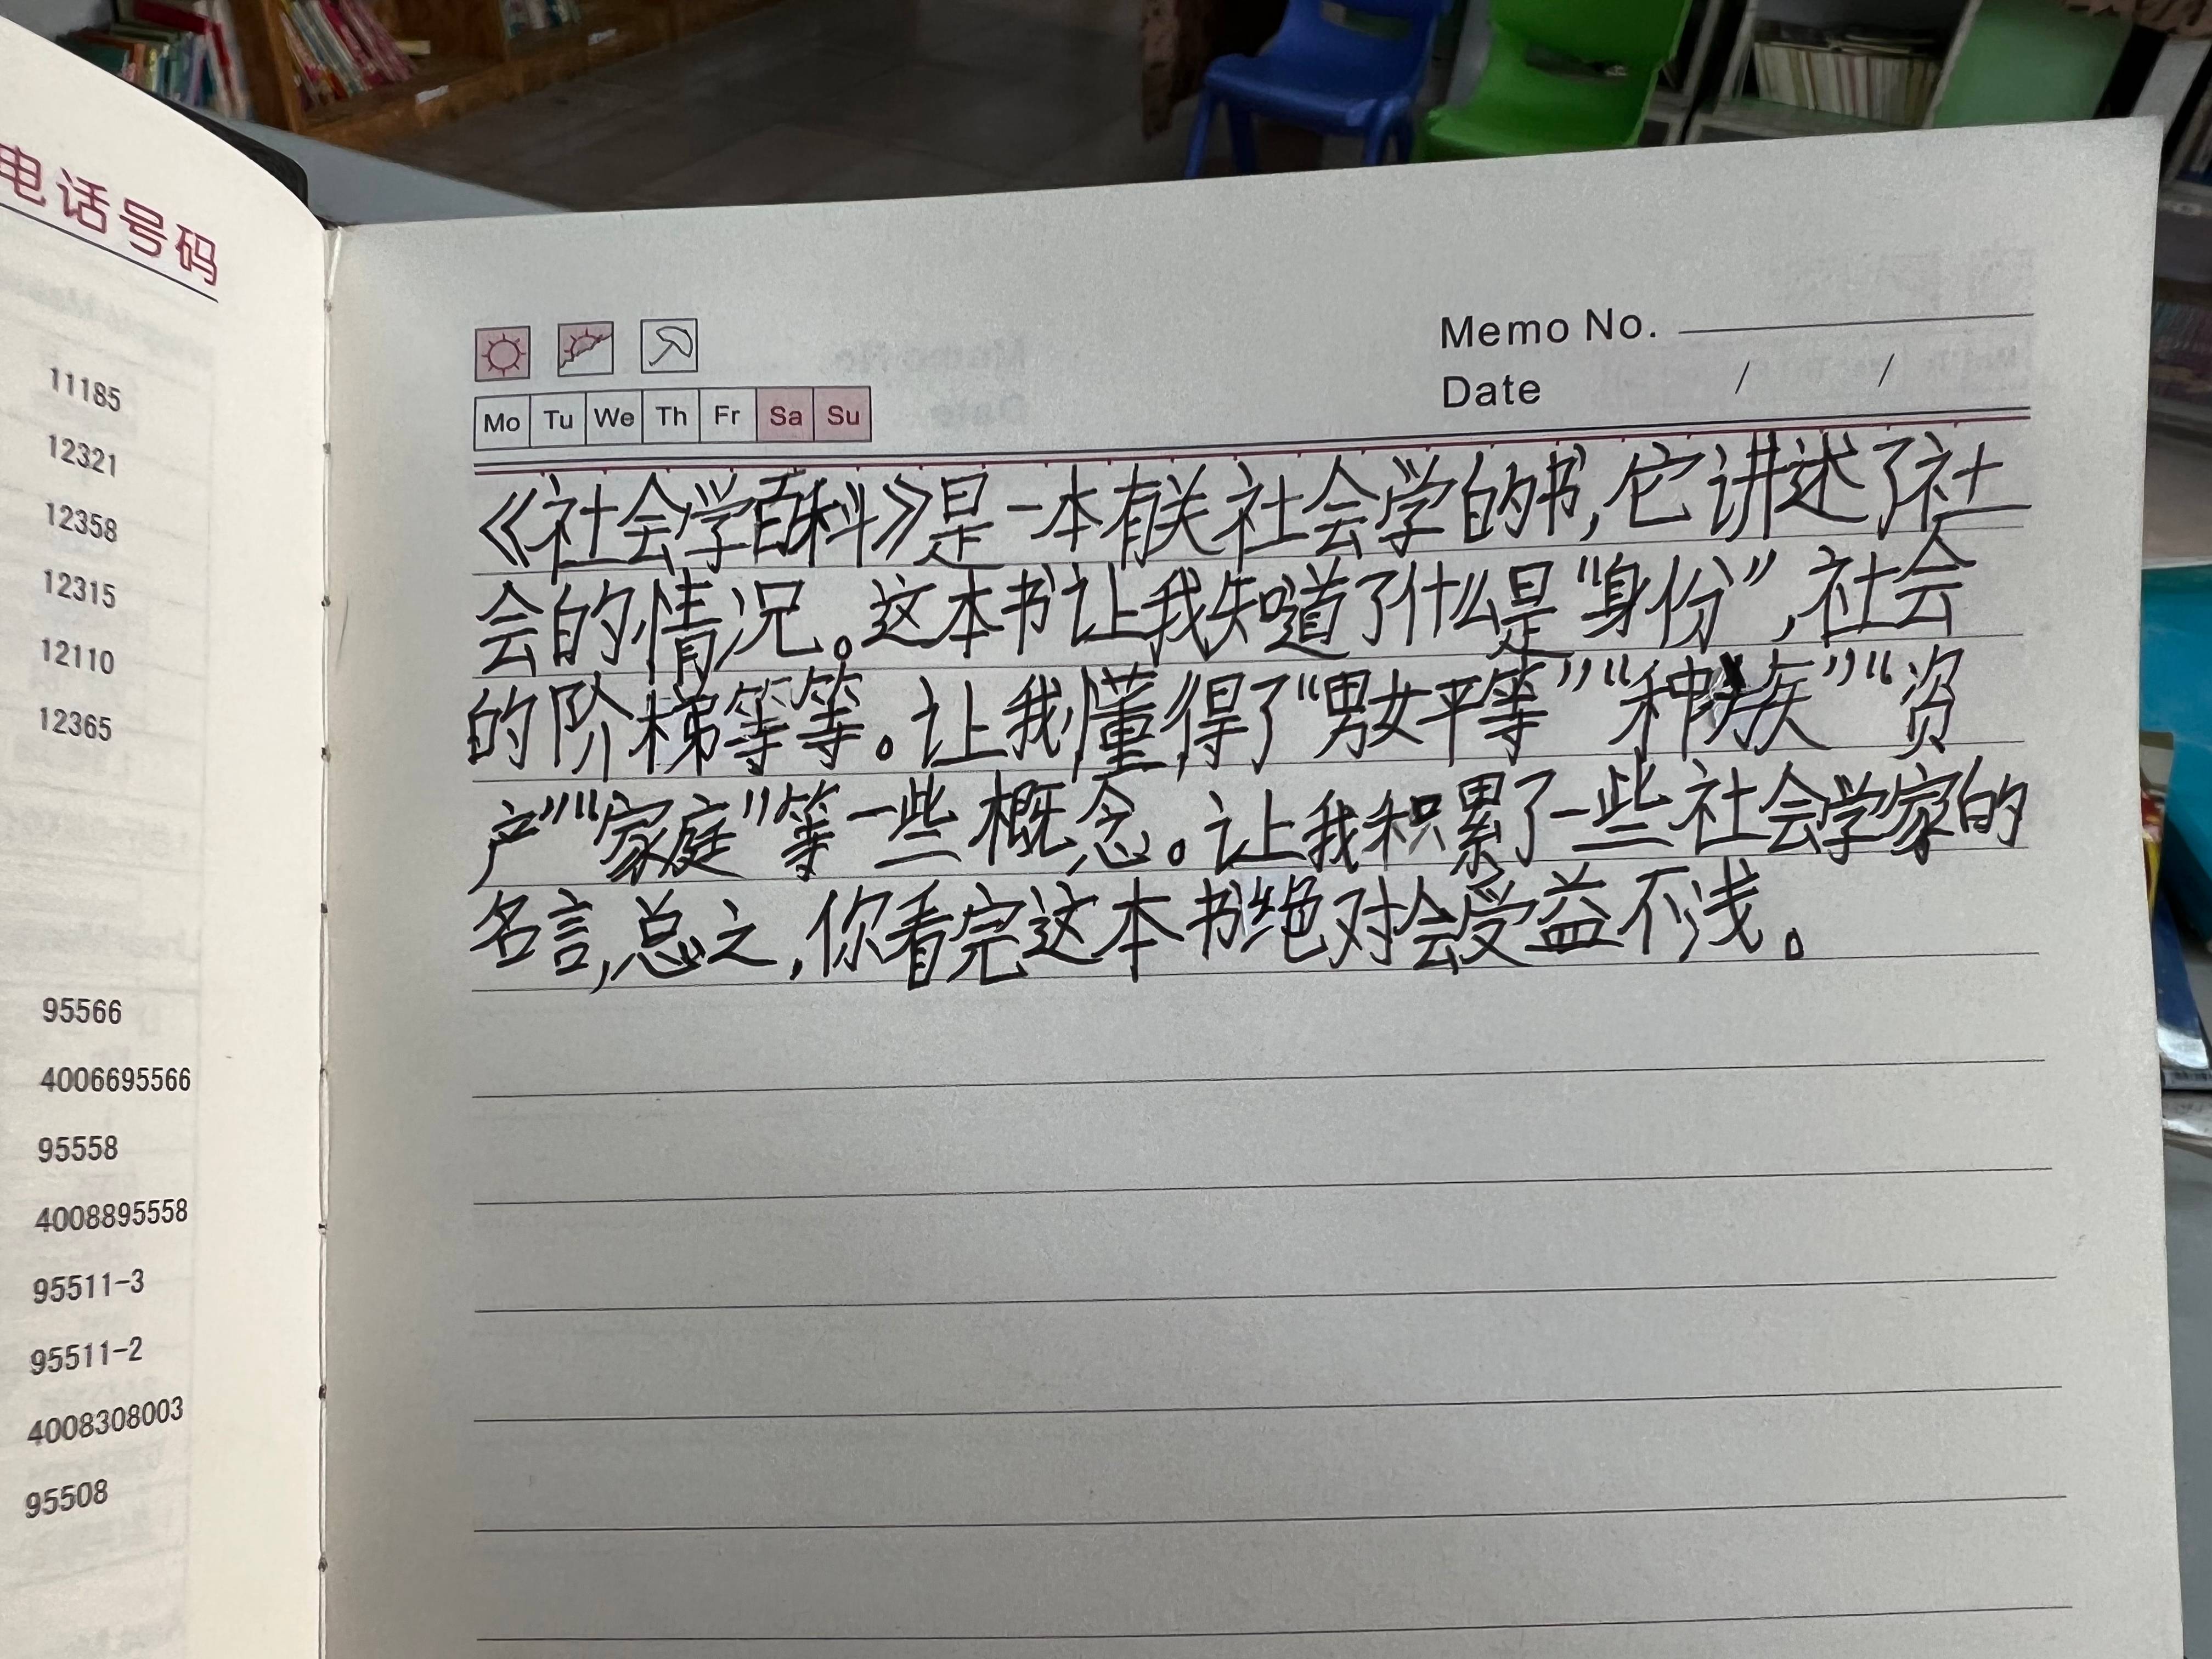 电话号码
11185
12321
12358
12315
12110
12365
95566
4006695566
95558
4008895558
95511-3
95511-2
4008308003
95508
Memo No.
Date / /
Mo Tu We Th Fr Sa Su
《社会学百科》是一本有关社会学的书,它讲述了社
会的情况。这本书让我知道了什么是“身份”,社会
的阶梯等等。让我懂得了“男女平等”“种族”“资
产”“家庭”等一些概念。让我积累了一些社会学家的
名言,总之,你看完这本书绝对会受益不浅。